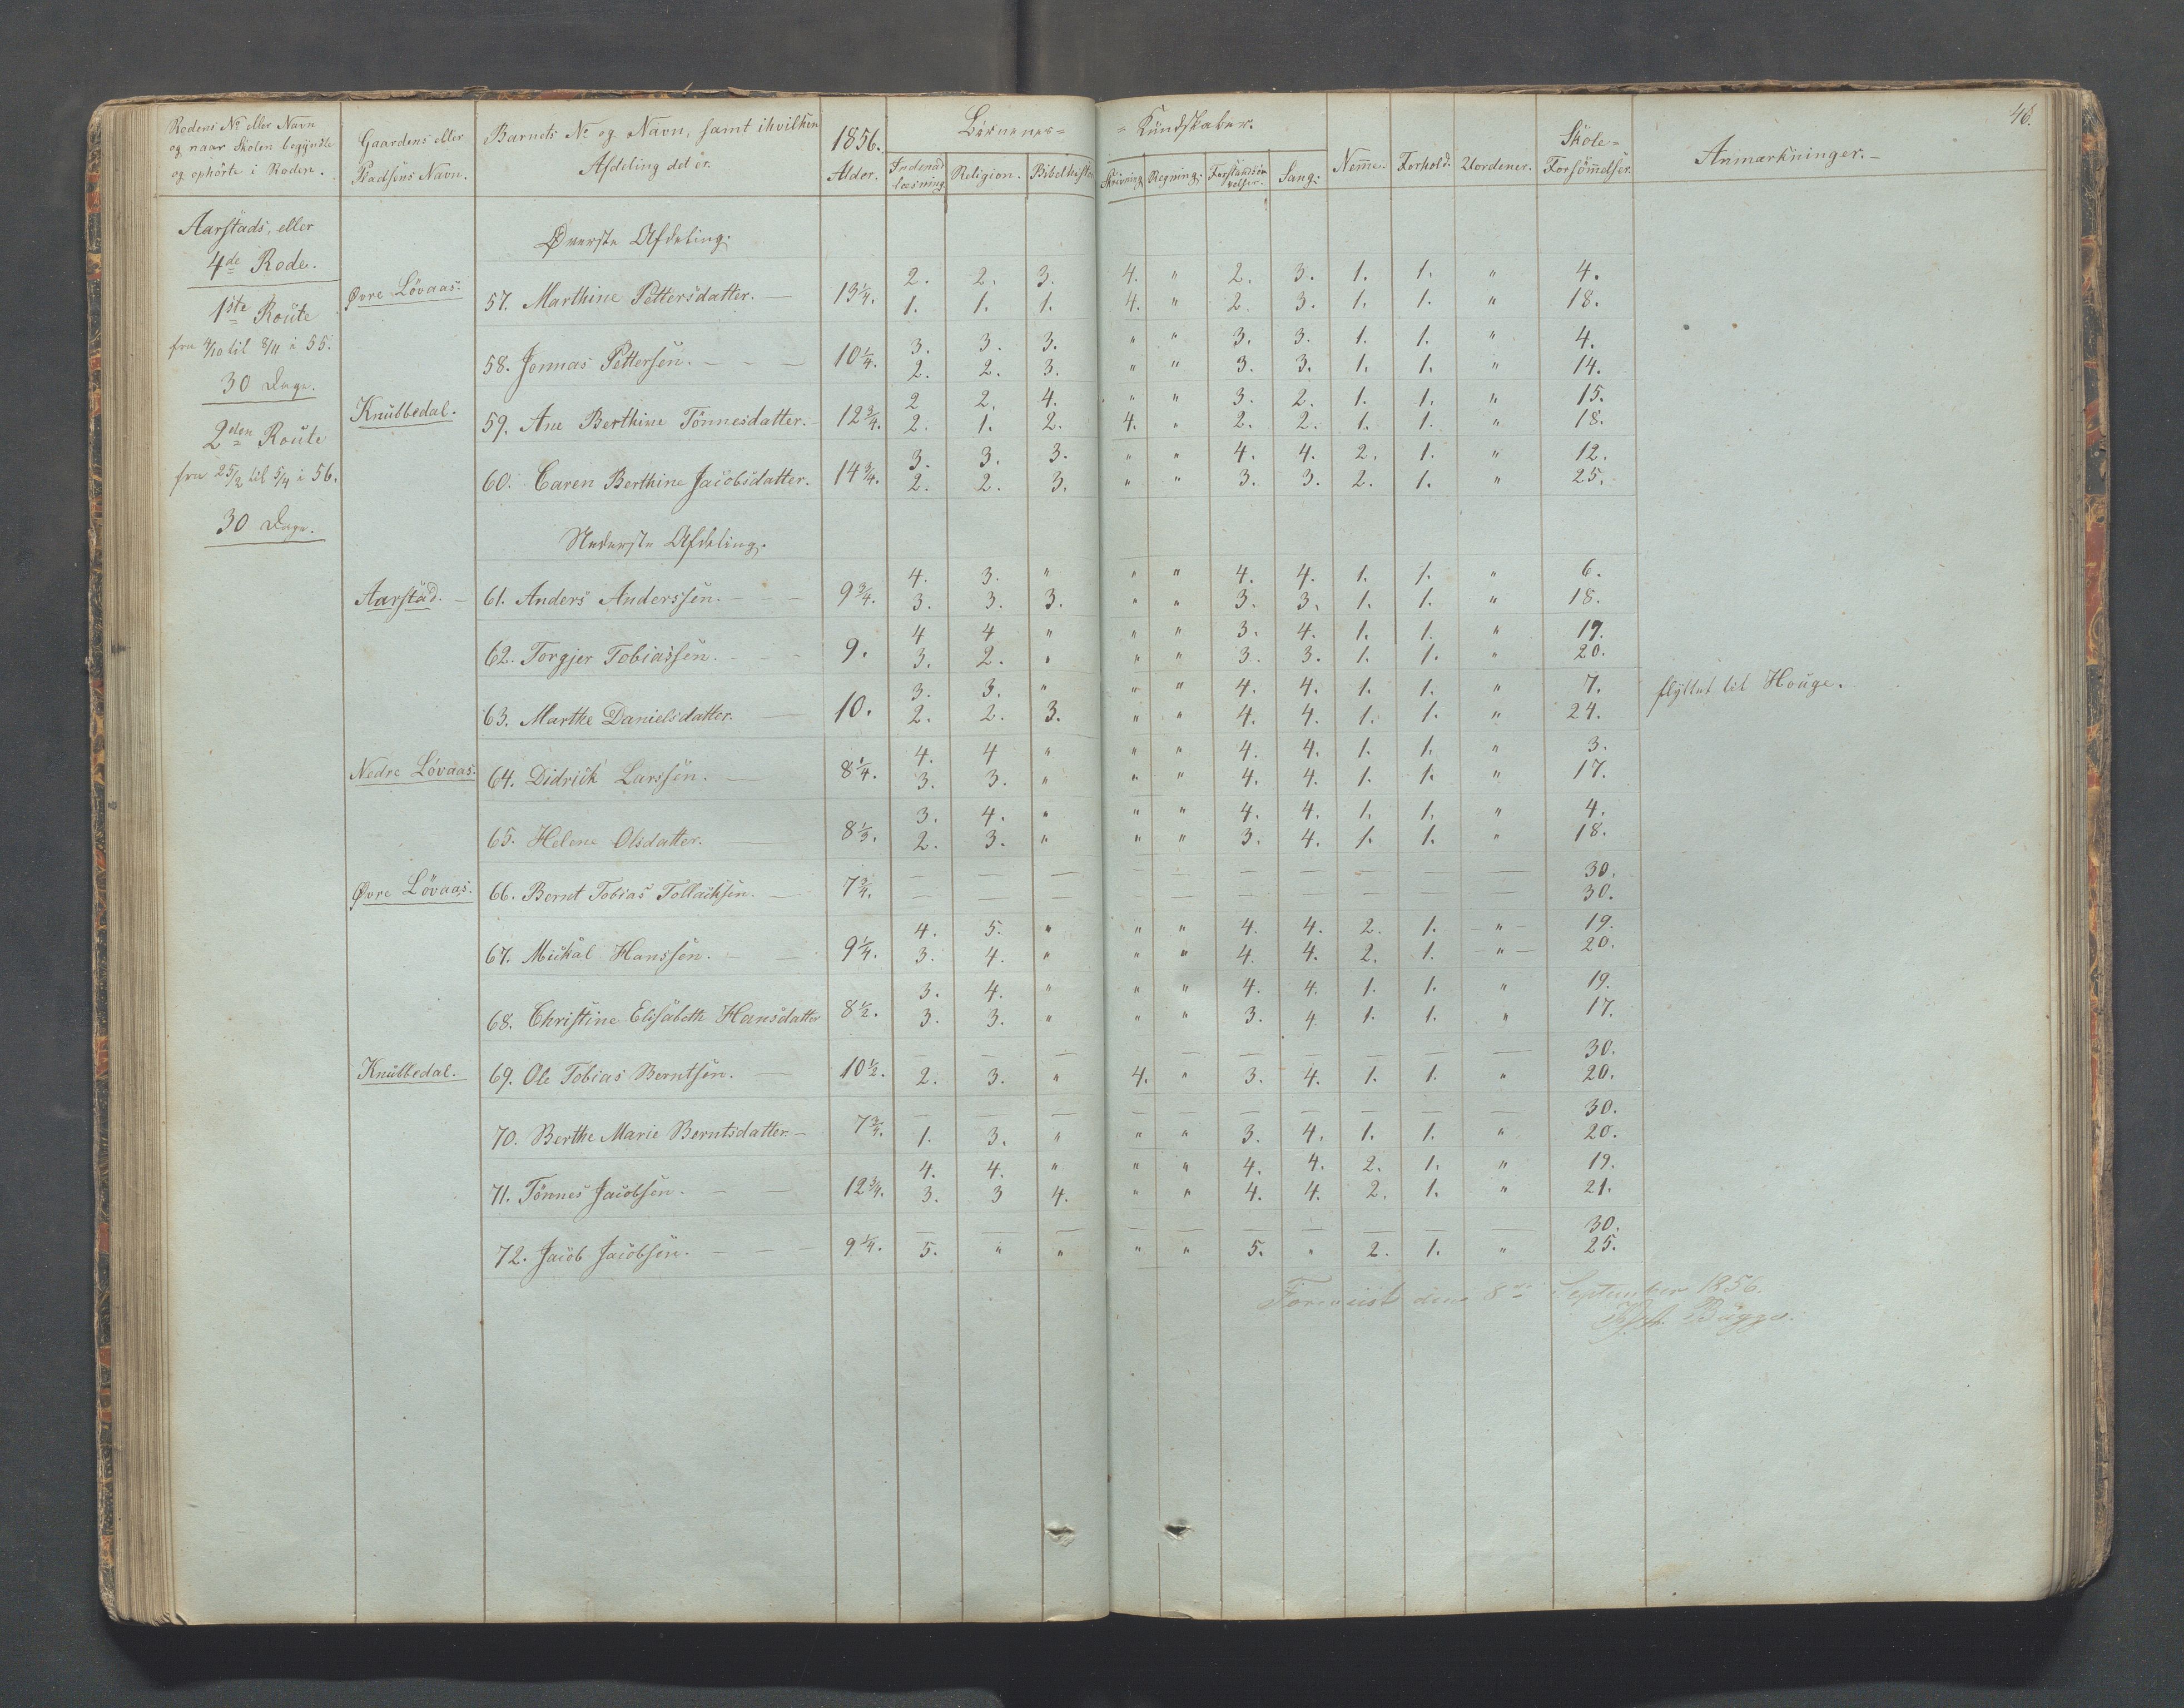 48.
Rodens No eller Navn og naar Skolen begyndte og ophörte i Roden.
Gaardens eller Pladsens Navn.
Barnets No og Navn, samt ihvilken Afdeling det er.
1856. Alder.
Börnenes= =Kundskaber.
Indenadlæsning. Religion. Bibelhistor. Skrivning. Regning. Forstandsövelser. Sang.
Nem̄e. Forhold. Uordener. Skole= Forsöm̄elser. Anmærkninger.
Aarstads, eller
4de Rode.
1ste Route
fra 4/10 til 8/11 i 55.
30 Dage.
2den Route
fra 25/2 til 5/4 i 56.
30 Dage.
Øverste Afdeling.
Øvre Lövaas. 57. Marthine Pettersdatter. 13 1/4. 2. 2. 3. 4. " 2. 3. 1. 1. " 4.
1. 1. 1. 4. " 2. 3. 1. 1. " 18.
58. Jonnas Pettersen. 10 1/4. 3. 3. 3. " " 3. 3. 1. 1. " 4.
2. 2. 3. " " 3. 3. 1. 1. " 14.
Knubbedal. 59. Ane Berthine Tönnesdatter. 12 3/4. 2 2. 4. " " 3. 2. 1. 1. " 15.
2. 1. 2. 4. " 2. 2. 1. 1. " 18.
60. Caren Berthine Jacobsdatter. 14 3/4. 3. 3. 3. " " 4. 4. 2. 1. " 12.
2. 2. 3. " " 3. 3. 2. 1. " 25.
Nederste Afdeling.
Aarstad. 61. Anders Anderssen. 9 3/4. 4. 3. " " " 4. 4. 1. 1. " 6.
3. 3. 3. " " 3. 3. 1. 1. " 18.
62. Torgjer Tobiassen. 9. 4 4 " " " 3. 4. 1. 1. " 19.
3. 2. " " " 3. 3. 1. 1. " 20.
63. Marthe Danielsdatter. 10. 3. 3. " " " 4. 4. 1. 1. " 7. flyttet til Houge.
2. 2. 3. " " 4. 4. 1. 1. " 24.
Nedre Lövaas. 64. Didrick Larssen. 8 1/4. 4. 4 " " " 4. 4. 1. 1. " 3.
3. 3. " " " 4. 4. 1. 1. " 17.
65. Helene Olsdatter. 8 1/3. 3. 4. " " " 4. 4. 1. 1. " 4.
2. 3. " " " 3. 4. 1. 1. " 18.
Øvre Lövaas. 66. Bernt Tobias Tollacksen. 7 3/4. — — — — — — — — — — 30.
— — — — — — — — — — 30.
67. Mickal Hanssen. 9 1/4. 4. 5. " " " 4. 4. 2. 1. " 19.
3. 4. " " " 4. 4. 2. 1. " 20.
68. Christine Elisabeth Hansdatter 8 1/2. 3. 4. " " " 4. 4. 1. 1. " 19.
3. 3. " " " 3. 4 1. 1. " 17.
Knubbedal. 69. Ole Tobias Berntsen. 10 1/2. — — — — — — — — — 30.
2. 3. " 4. " 3. 4. 1. 1. " 20.
70. Berthe Marie Berntsdatter. 7 3/4. — — — — — — — — — — 30.
1. 3. " " " 3. 4. 1. 1. " 20.
71. Tönnes Jacobsen. 12 3/4. 4. 4. " " " 4. 4. 2. 1. " 19.
3. 3 4. " " 4. 4. 2. 1. " 21.
72. Jacob Jacobsen. 9 1/4. — — — — — — — — — — 30.
5. " " " " 5. " 2. 1. " 25.
Foreviist den 8de September 1856.
Bugge.